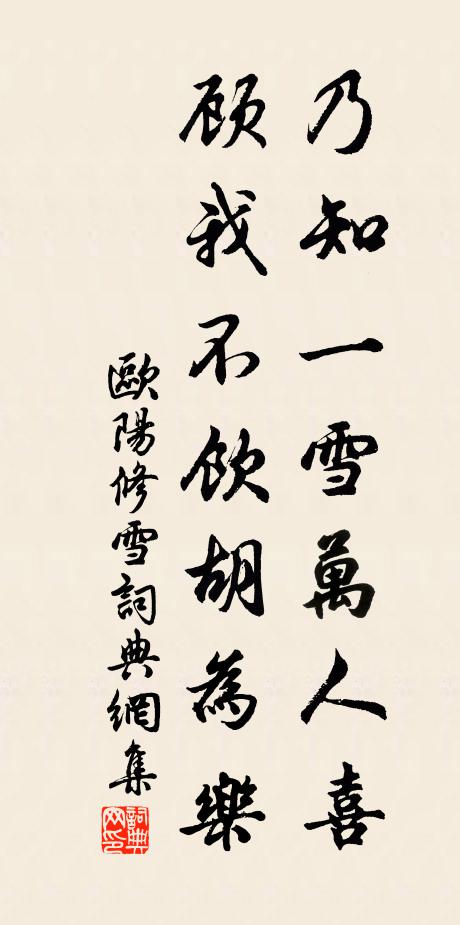 乃知一雪萬人喜
顧我不飲胡為樂
歐陽修雪詞典網集
詞典网印